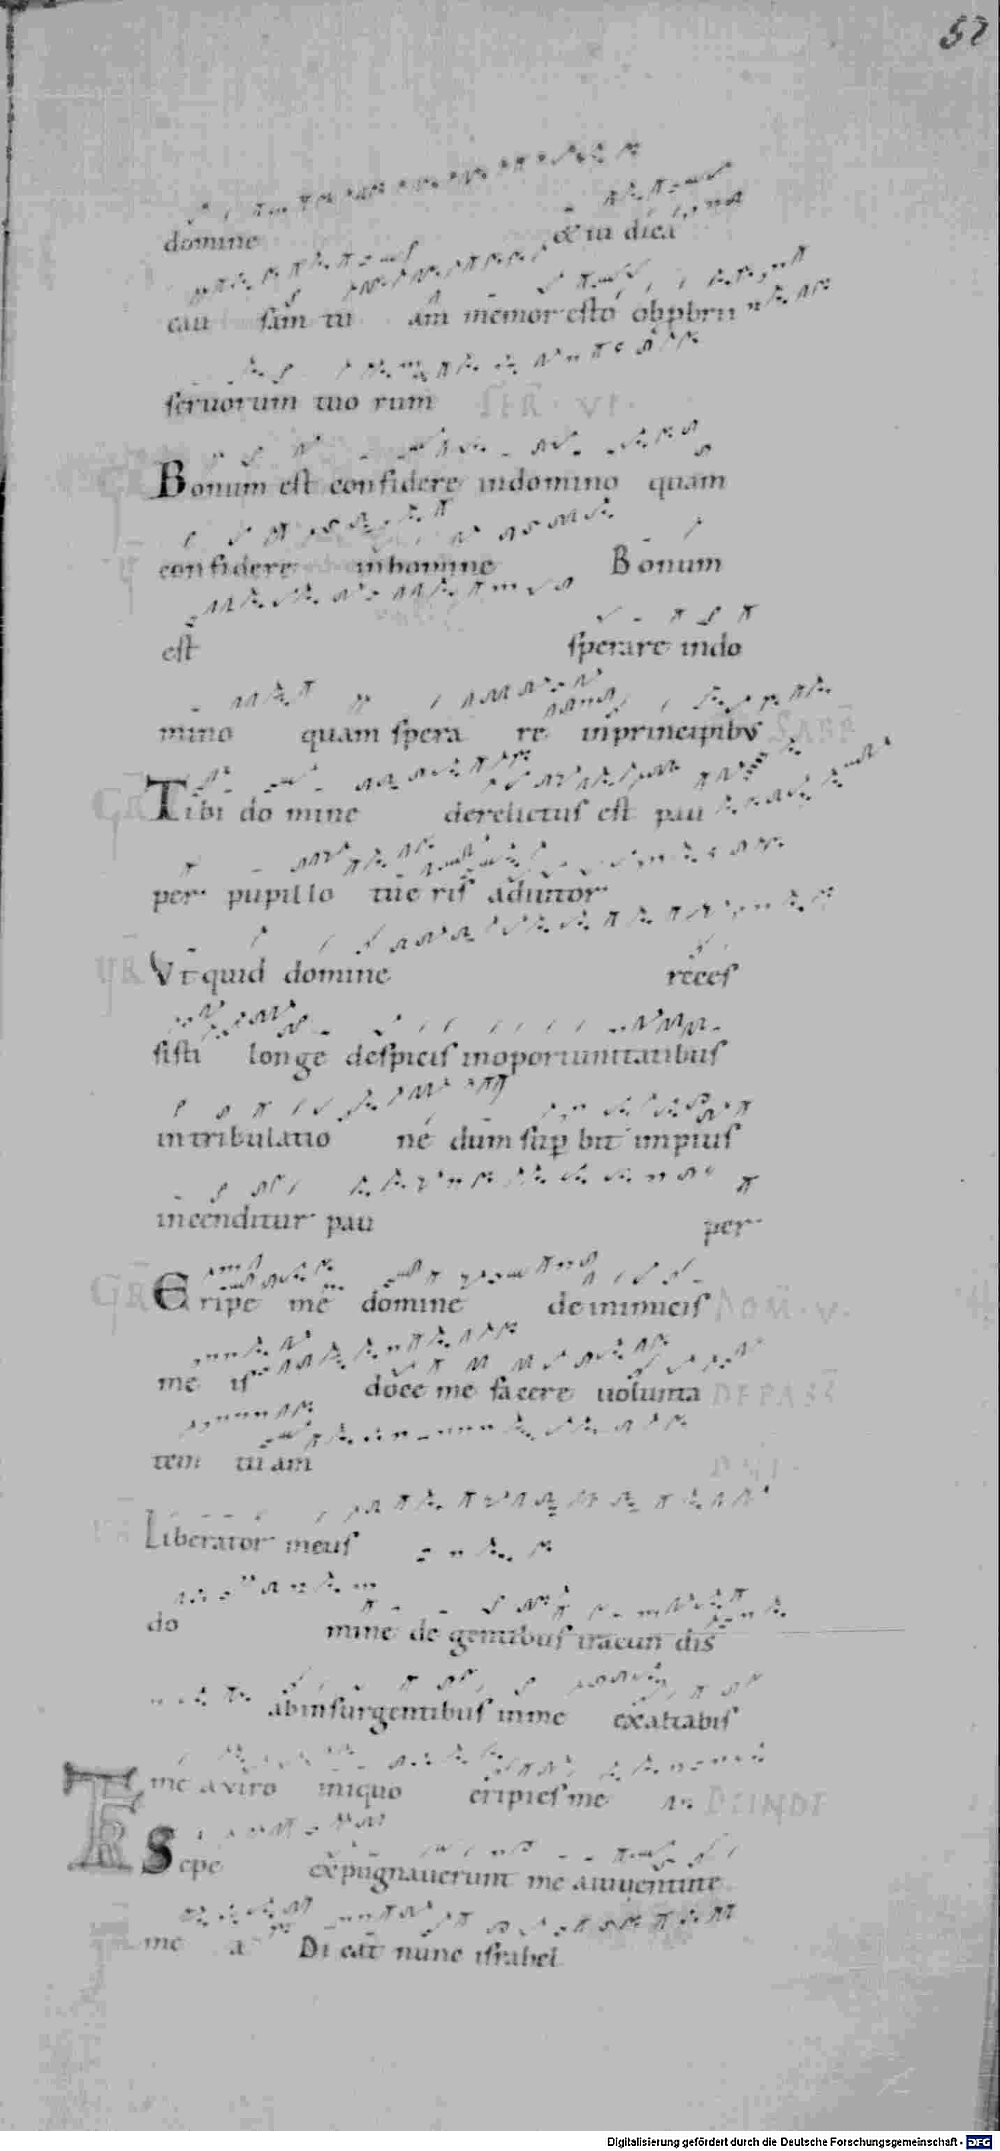 52
domine & iu dica
cau sam tu am memor esto obprbrii
seruorum tuo rum SER · VI ·
Bonum est confidere indomino quam
confidere inhomine Bonum
est sperare indo
mino quam spera re inprincipibus SABB
GR Tibi do mine derelictus est pau
per pupillo tue ris adiutor
GR Vt quid domine reces
sisti longe despicis inoportunitatibus
intribulatio ne dum sup bit impius
incenditur pau per
GR Eripe me domine deinimicis DOM · V ·
me is doce me facere uolunta DE PASS
tem tu am DNI
GR Liberator meus
do mine de gentibus iracun dis
abinsurgentibus inme exaltabis
me a viro iniquo eripies me DEINDE
TR Sepe expugnauerunt me aiuuentute
me a Di cat nunc israhel
Digitalisierung gefördert durch die Deutsche Forschungsgemeinschaft - DFG